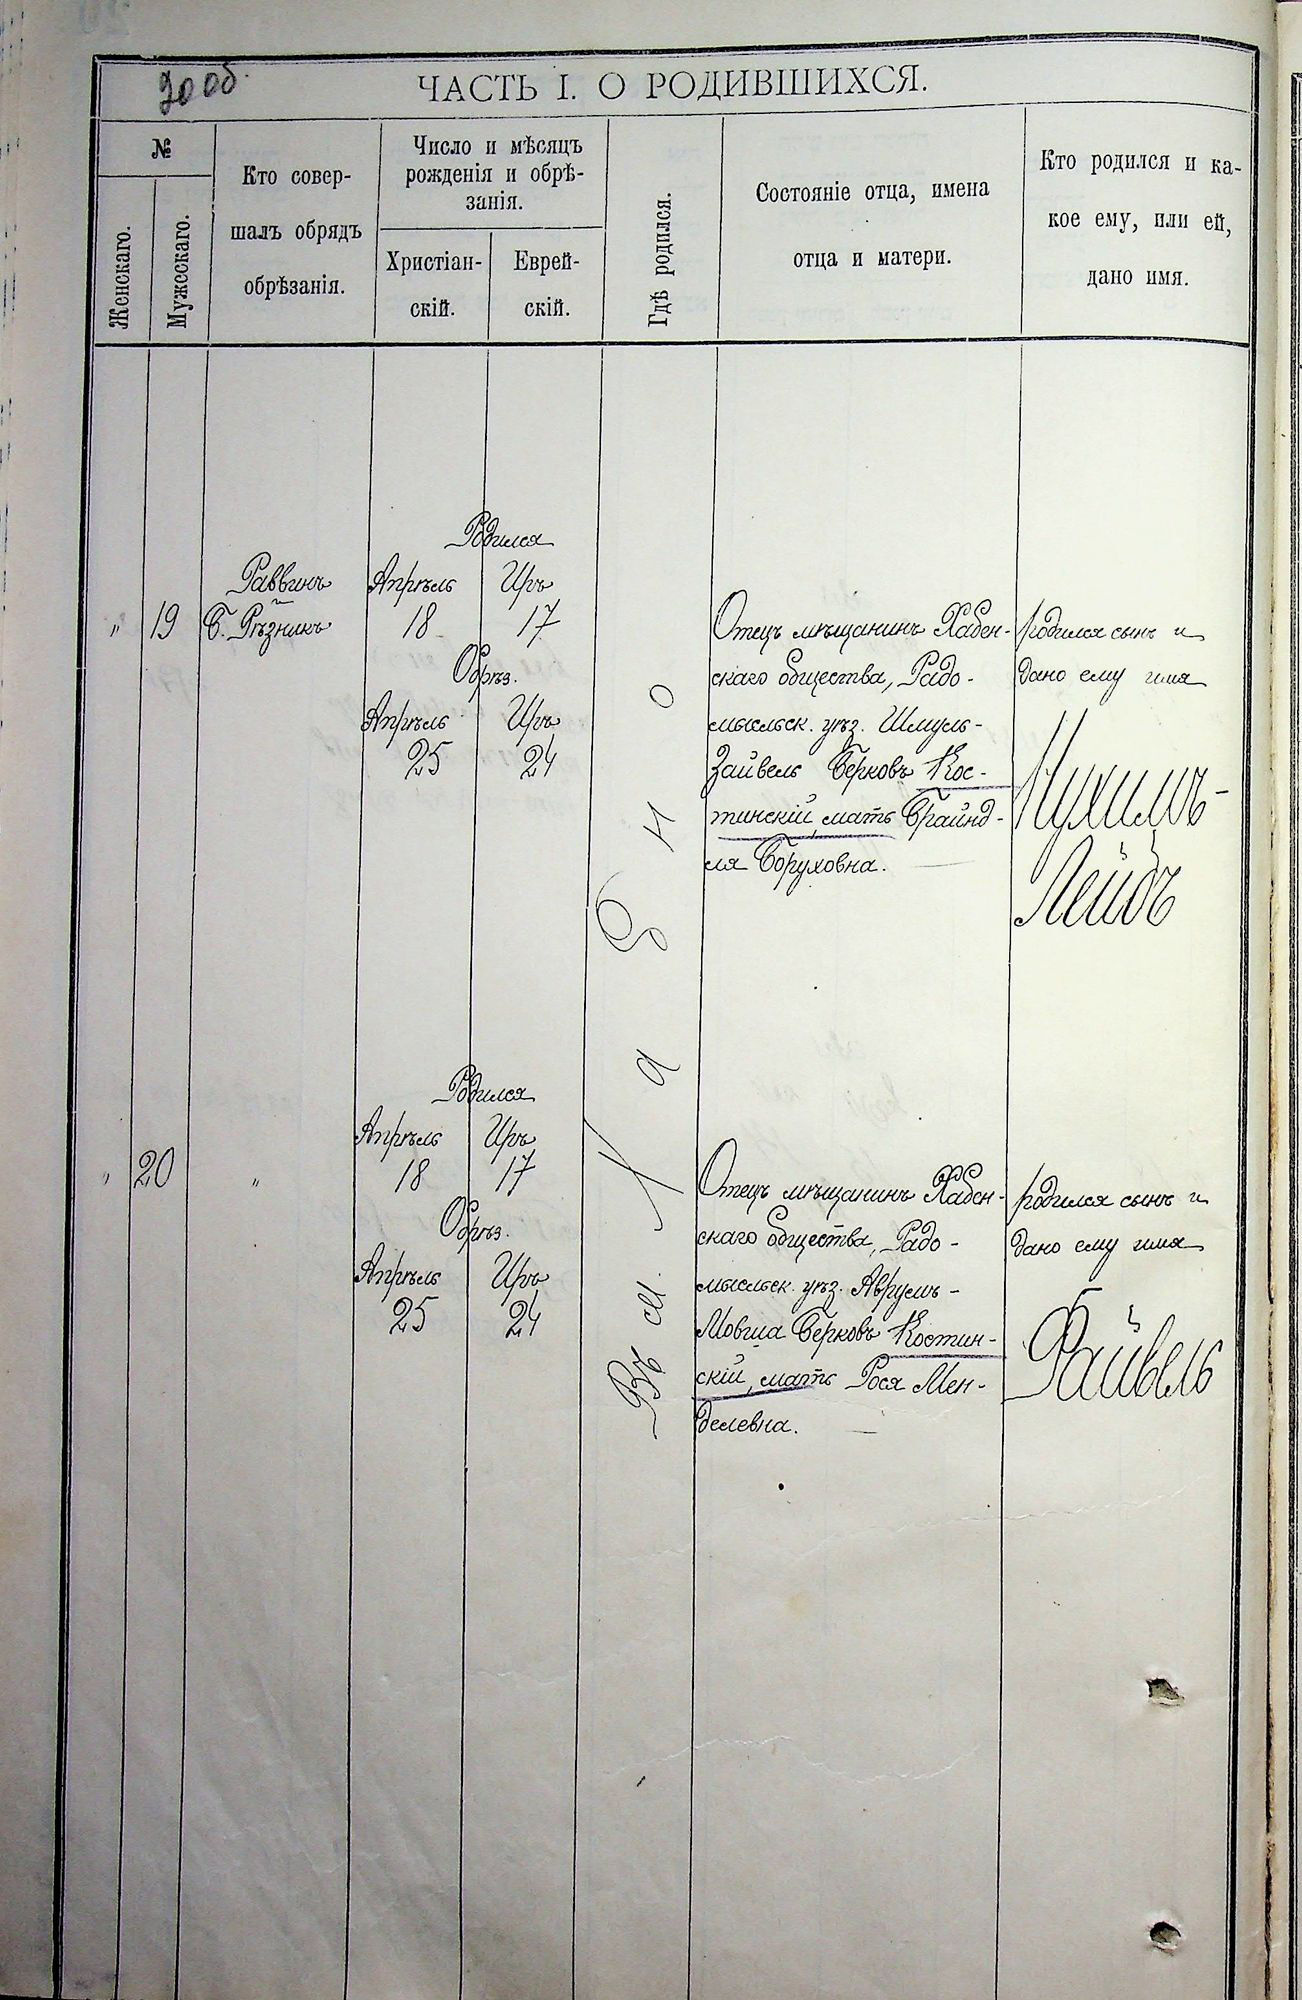 20 об.
ЧАСТЬ I. О РОДИВШИХСЯ.
№
Женскаго.
Мужескаго.
Кто совер-
шалъ обрядъ
обрѣзанія.
Число и мѣсяцъ
рожденія и обрѣ-
занія.
Христіан-
скій.
Еврей-
скій.
Гдѣ родился.
Состояніе отца, имена
отца и матери.
Кто родился и ка-
кое ему, или ей,
дано имя.
Въ м. Хабно
„ 19
Раввинъ
Б. Рѣзникъ
Родился
Апрѣль Иръ
18 17
Обрѣз.
Апрѣль Иръ
25 24
Отецъ мѣщанинъ Хабен-
скаго общества, Радо-
мысльск. уѣз. Шмуль-
Зайвель Берковъ Кос-
тинскій, мать Брайнд-
ля Боруховна.
родился сынъ и
дано ему имя
Нухимъ-
Лейбъ
„ 20 „
Родился
Апрѣль Иръ
18 17
Обрѣз.
Апрѣль Иръ
25 24
Отецъ мѣщанинъ Хабен-
скаго общества, Радо-
мысльск. уѣз. Аврумъ-
Мовша Берковъ Костин-
скій, мать Рося Мен-
делевна.
родился сынъ и
дано ему имя
Файвель